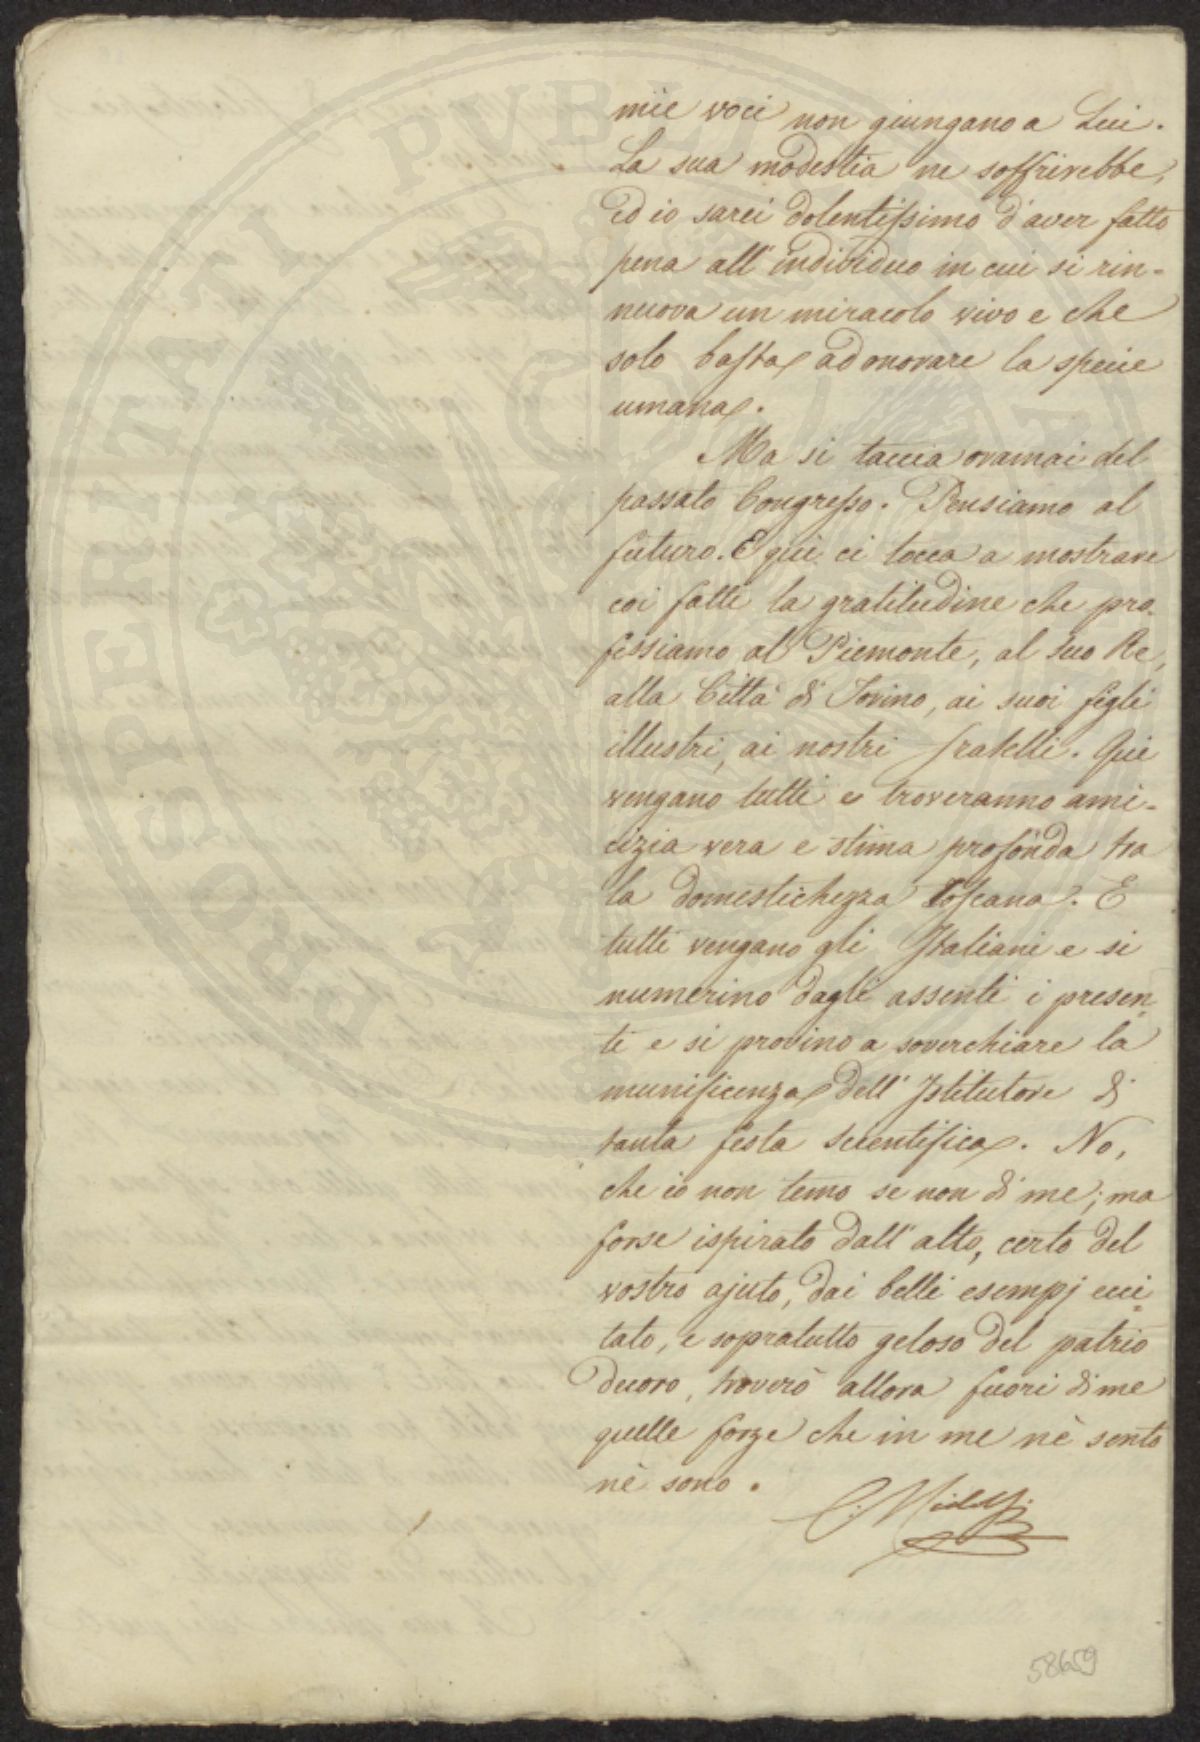 mie voci non giungano a Lui.
La sua modestia ne soffrirebbe,
ed io sarei dolentissimo d'aver fatto
pena all'individuo in cui si rin-
nuova un miracolo vivo e che
solo basta ad onorare la specie
umana.
Ma si taccia oramai del
passato Congresso. Pensiamo al
futuro. E qui ci tocca a mostrare
coi fatti la gratitudine che pro-
fessiamo al Piemonte, al suo Re,
alla Città di Torino, ai suoi figli
illustri, ai nostri fratelli. Qui
vengano tutti e troveranno ami-
cizia vera e stima profonda tra
la domestichezza Toscana. E
tutti vengano gli Italiani e si
numerino dagli assenti i presen-
ti e si provino a soverchiare la
munificenza dell'Istitutore di
tanta festa scientifica. No,
che io non temo se non di me; ma
forse ispirato dall'alto, certo del
vostro ajuto, dai belli esempj ecci-
tato, e sopratutto geloso del patrio
decoro, troverò allora fuori di me
quelle forze che in me nè sento
nè sono.
58659
PROSPERITATI PVBL